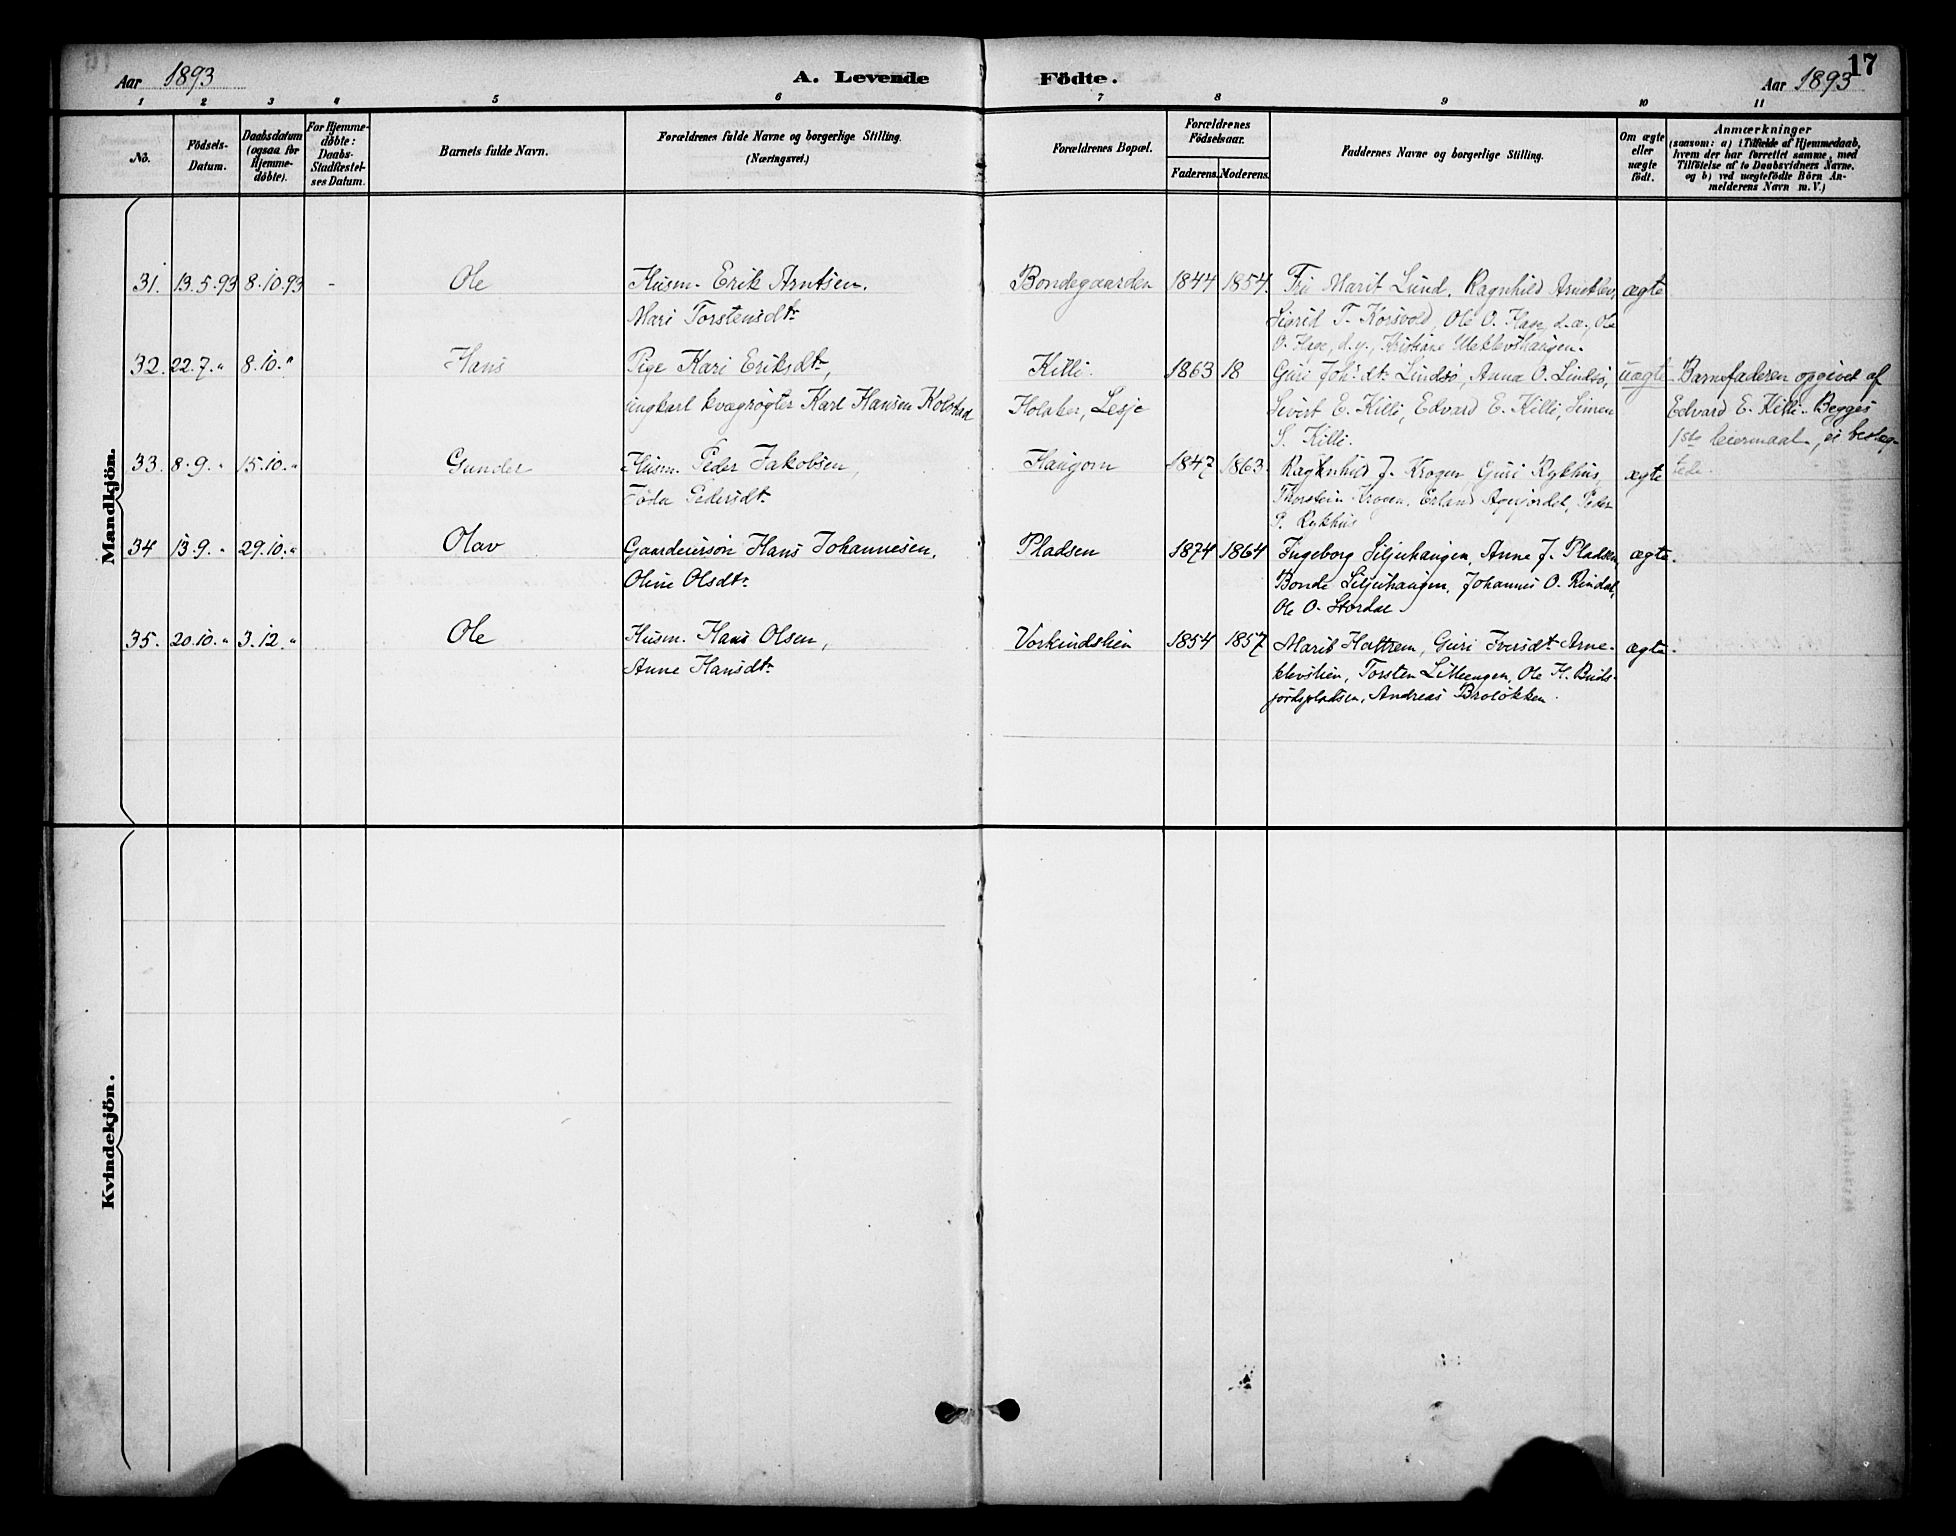 17
Aar 1893 A. Levende Födte. Aar 1893
1 2 3 4 5 6 7 8 9 10 11
No.
Födsels-
Datum.
Daabsdatum
(ogsaa for
Hjemme-
döbte).
For Hjemme-
döbte:
Daabs-
Stadfæstel-
ses Datum.
Barnets fulde Navn.
Forældrenes fulde Navne og borgerlige Stilling.
(Næringsvei.)
Forældrenes Bopæl.
Forældrenes
Födselsaar.
Faderens. Moderens.
Faddernes Navne og borgerlige Stilling.
Om ægte
eller
uægte
födt.
Anmærkninger
(saasom: a) i Tilfælde af Hjemmedaab,
hvem der har forrettet samme, med
Tilföielse af to Daabsvidners Navne,
og b) ved uægtefödte Börn An-
melderens Navn m.V.)
Mandkjön.
31. 13.5.93 8.10.93 - Ole Husm. Erik Arntsen, Bondegaarden 1844 1854. Fru Marit Lund, Ragnhild Arneklev, ægte
Mari Torstensdtr Sigrid T. Korsvold, Ole O. Hase, d.æ., Ole
O. Hase, d.y., Kristiane
32. 22.7. " 8.10. " Hans Pige Kari Eriksdtr, Killi. 1863 18 Guri Joh.dtr Lindsø, Anna O. Lindsø, uægte Barnefaderen opgivet af
ungkarl kvægrøgter Karl Hansen Kolstad Holaker, Lesje Sivert E. Killi, Edvard E. Killi, Simen Edvard E. Killi. Begges
S. Killi. 1ste leiermaal, ei beslæg-
tede.
33. 8.9. " 15.10. " Gunder Husm. Peder Jakobsen, Haugom 1847 1863 Ragnhild J. Krogen, Guri Rykhus, ægte
Pedersdtr Thorstein Krogen, Erland Peder
P. Rykhus
34 13.9. " 29.10. " Olav Gaardeiersøn Hans Johannesen, Pladsen 1874 1864 Ingeborg Siljuhaugen, Anne J. Pladsen, ægte.
Oline Olsdtr Bonde Siljuhaugen, Johannes O. Rindal,
Ole O. Stordal
35. 20.10. " 3.12. " Ole Husm. Hans Olsen, Vorkindslien 1854 1857 Marit Hattrem, Guri Iversdtr Arne- ægte.
Anne Hansdtr klevslien, Torsten Lilleengen, Ole H. Buds-
jordspladsen, Andreas Broløkken.
Kvindekjön.